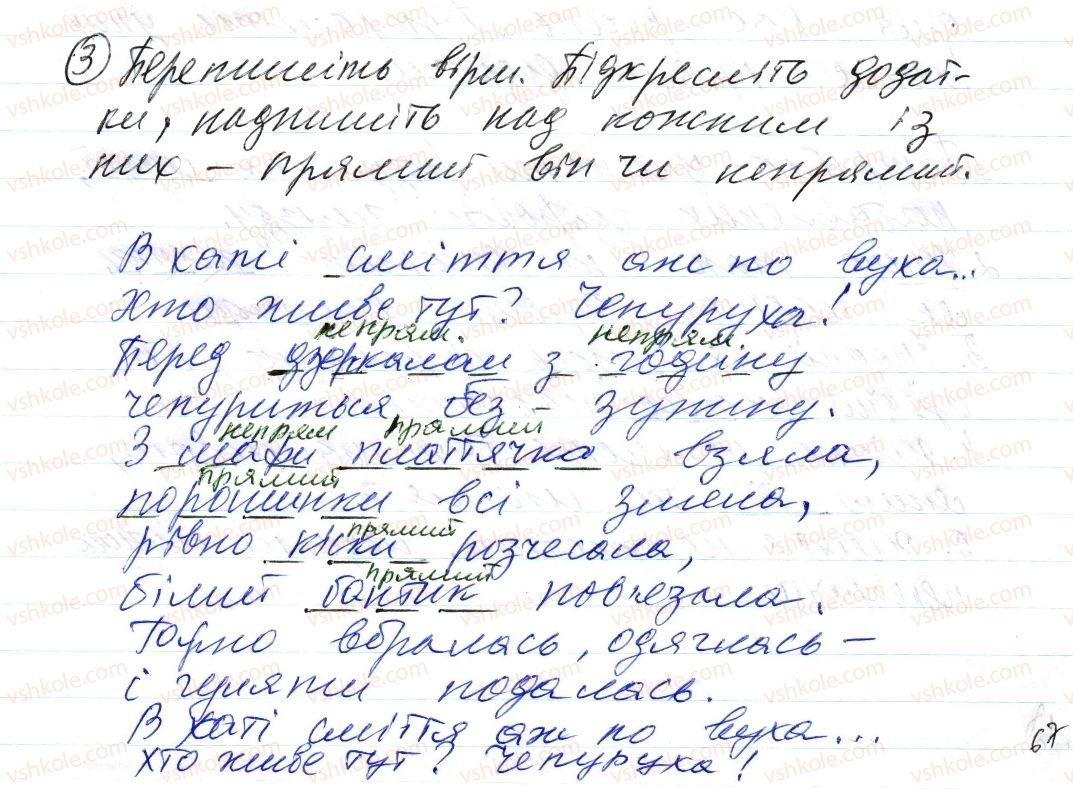 3 Перепишіть вірш. Підкресліть додат-
ки, надпишіть над кожним із
них – прямий він чи непрямий.
В хаті сміття аж по вуха...
Хто живе тут? Чепуруха!
непрям. непрям.
Перед дзеркалом з годину
чепуриться без – зупину.
непрям прямий
З шафи платтячка взяла,
прямий
порошинки всі змела,
прямий
рівно кіски розчесала,
прямий
білий бантик пов'язала.
Гарно вбралась, одяглась –
і гуляти подалась.
В хаті сміття аж по вуха...
Хто живе тут? Чепуруха!
67